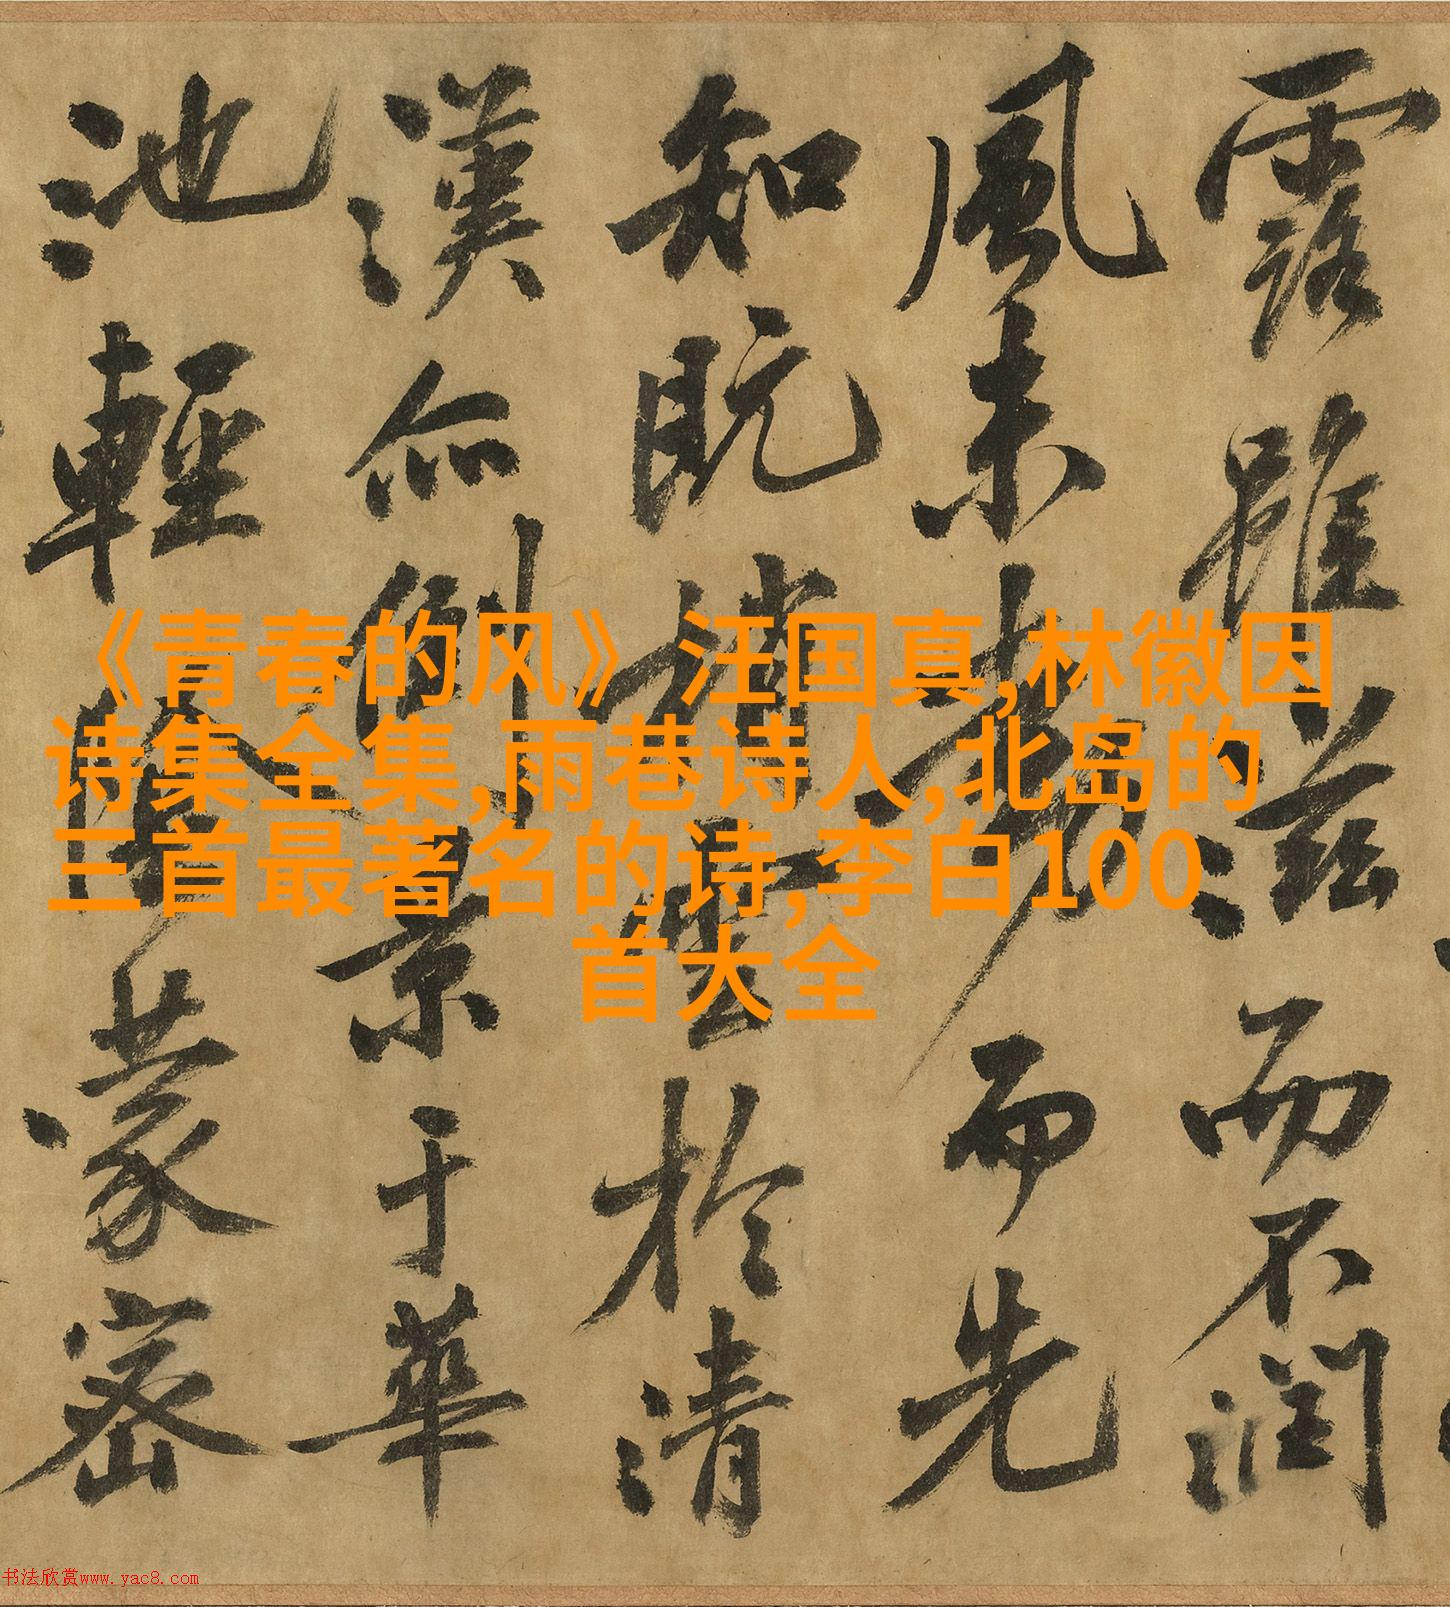 露雖滋而不潤
風未動而先
知既消雲於清
漢亦倒景于華
池輕陰蒙密
《青春的风》汪国真,林徽因
诗集全集,雨巷诗人,北岛的
三首最著名的诗,李白100
首大全
书法欣赏www.yac8.com